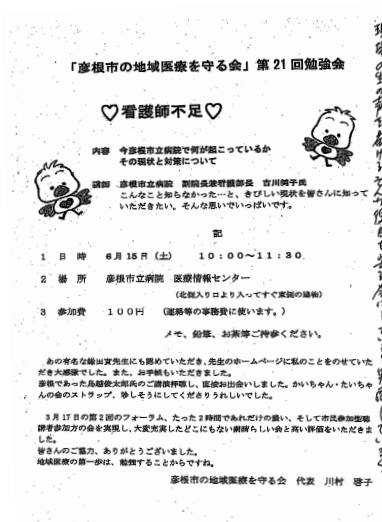 「彦根市の地域医療を守る会」第21回勉強会
♡看護師不足♡
内容 今彦根市立病院で何が起こっているか
その現状と対策について
講師 彦根市立病院 副院長兼看護部長 吉川純子氏
こんなこと知らなかった…と、きびしい現状を皆さんに知って
いただきたい。そんな思いでいっぱいです。
記
1 日 時 6月15日（土） 10：00～11：30
2 場 所 彦根市立病院 医療情報センター
（北側入り口より入ってすぐ東側の建物）
3 参加費 100円 （連絡等の事務費に使います。）
メモ、鉛筆、お茶等ご持参ください。
あの有名な鎌田實先生にも認めていただき、先生のホームページに私のことをのせていた
だき大感激でした。また、お手紙もいただきました。
彦根であった鳥越俊太郎氏のご講演拝聴し、直接お出会いしました。かいちゃん・たいちゃ
んの会のストラップ、珍しそうにしてくださりうれしいでした。
3月17日の第2回のフォーラム、たった2時間であれだけの濃い、そして市民参加型聴
講者参加方の会を実現し、大変充実したどこにもない素晴らしい会と高い評価をいただきま
した。
皆さんのご協力、ありがとうございました。
地域医療の第一歩は、勉強することからですね。
彦根市の地域医療を守る会 代表 川村 啓子